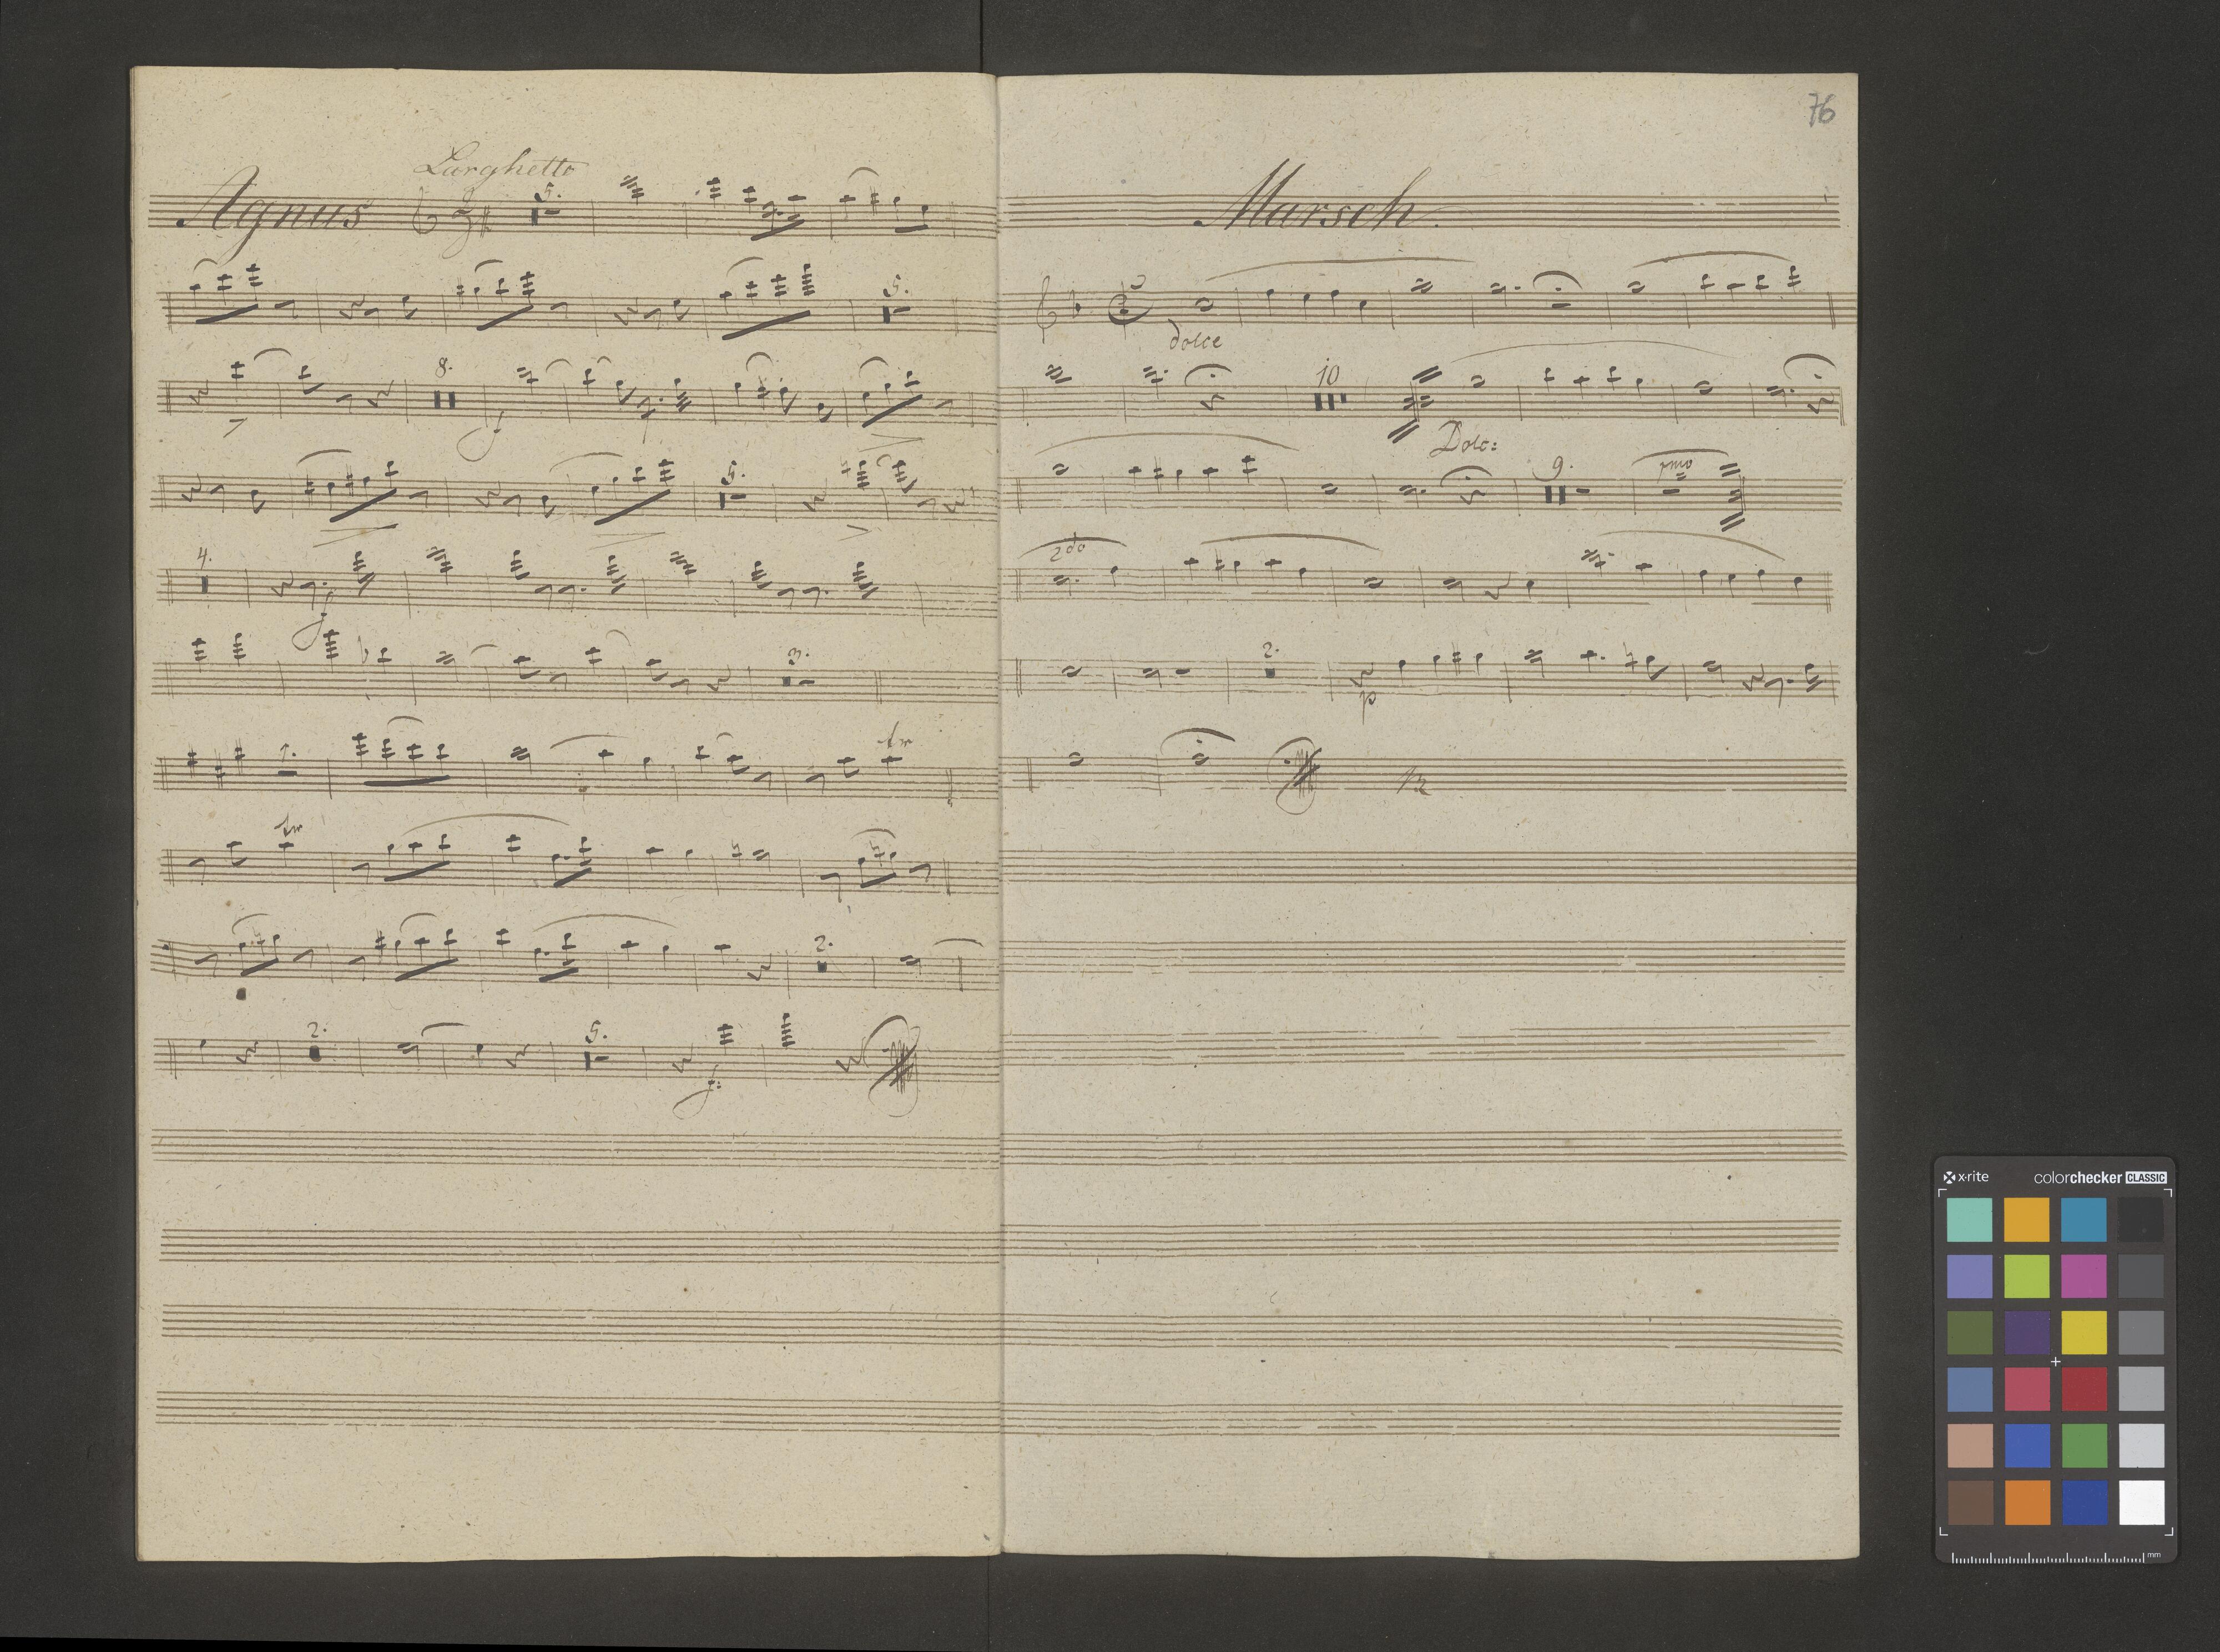 Larghetto
Agnus 5.
5.
8.
f
5.
4.
f
3.
tr
tr
2.
2. 5.
f:
76
Marsch.
dolce
10
Dolc:
9. pmo
2do
2.
p
x·rite colorchecker CLASSIC
mm